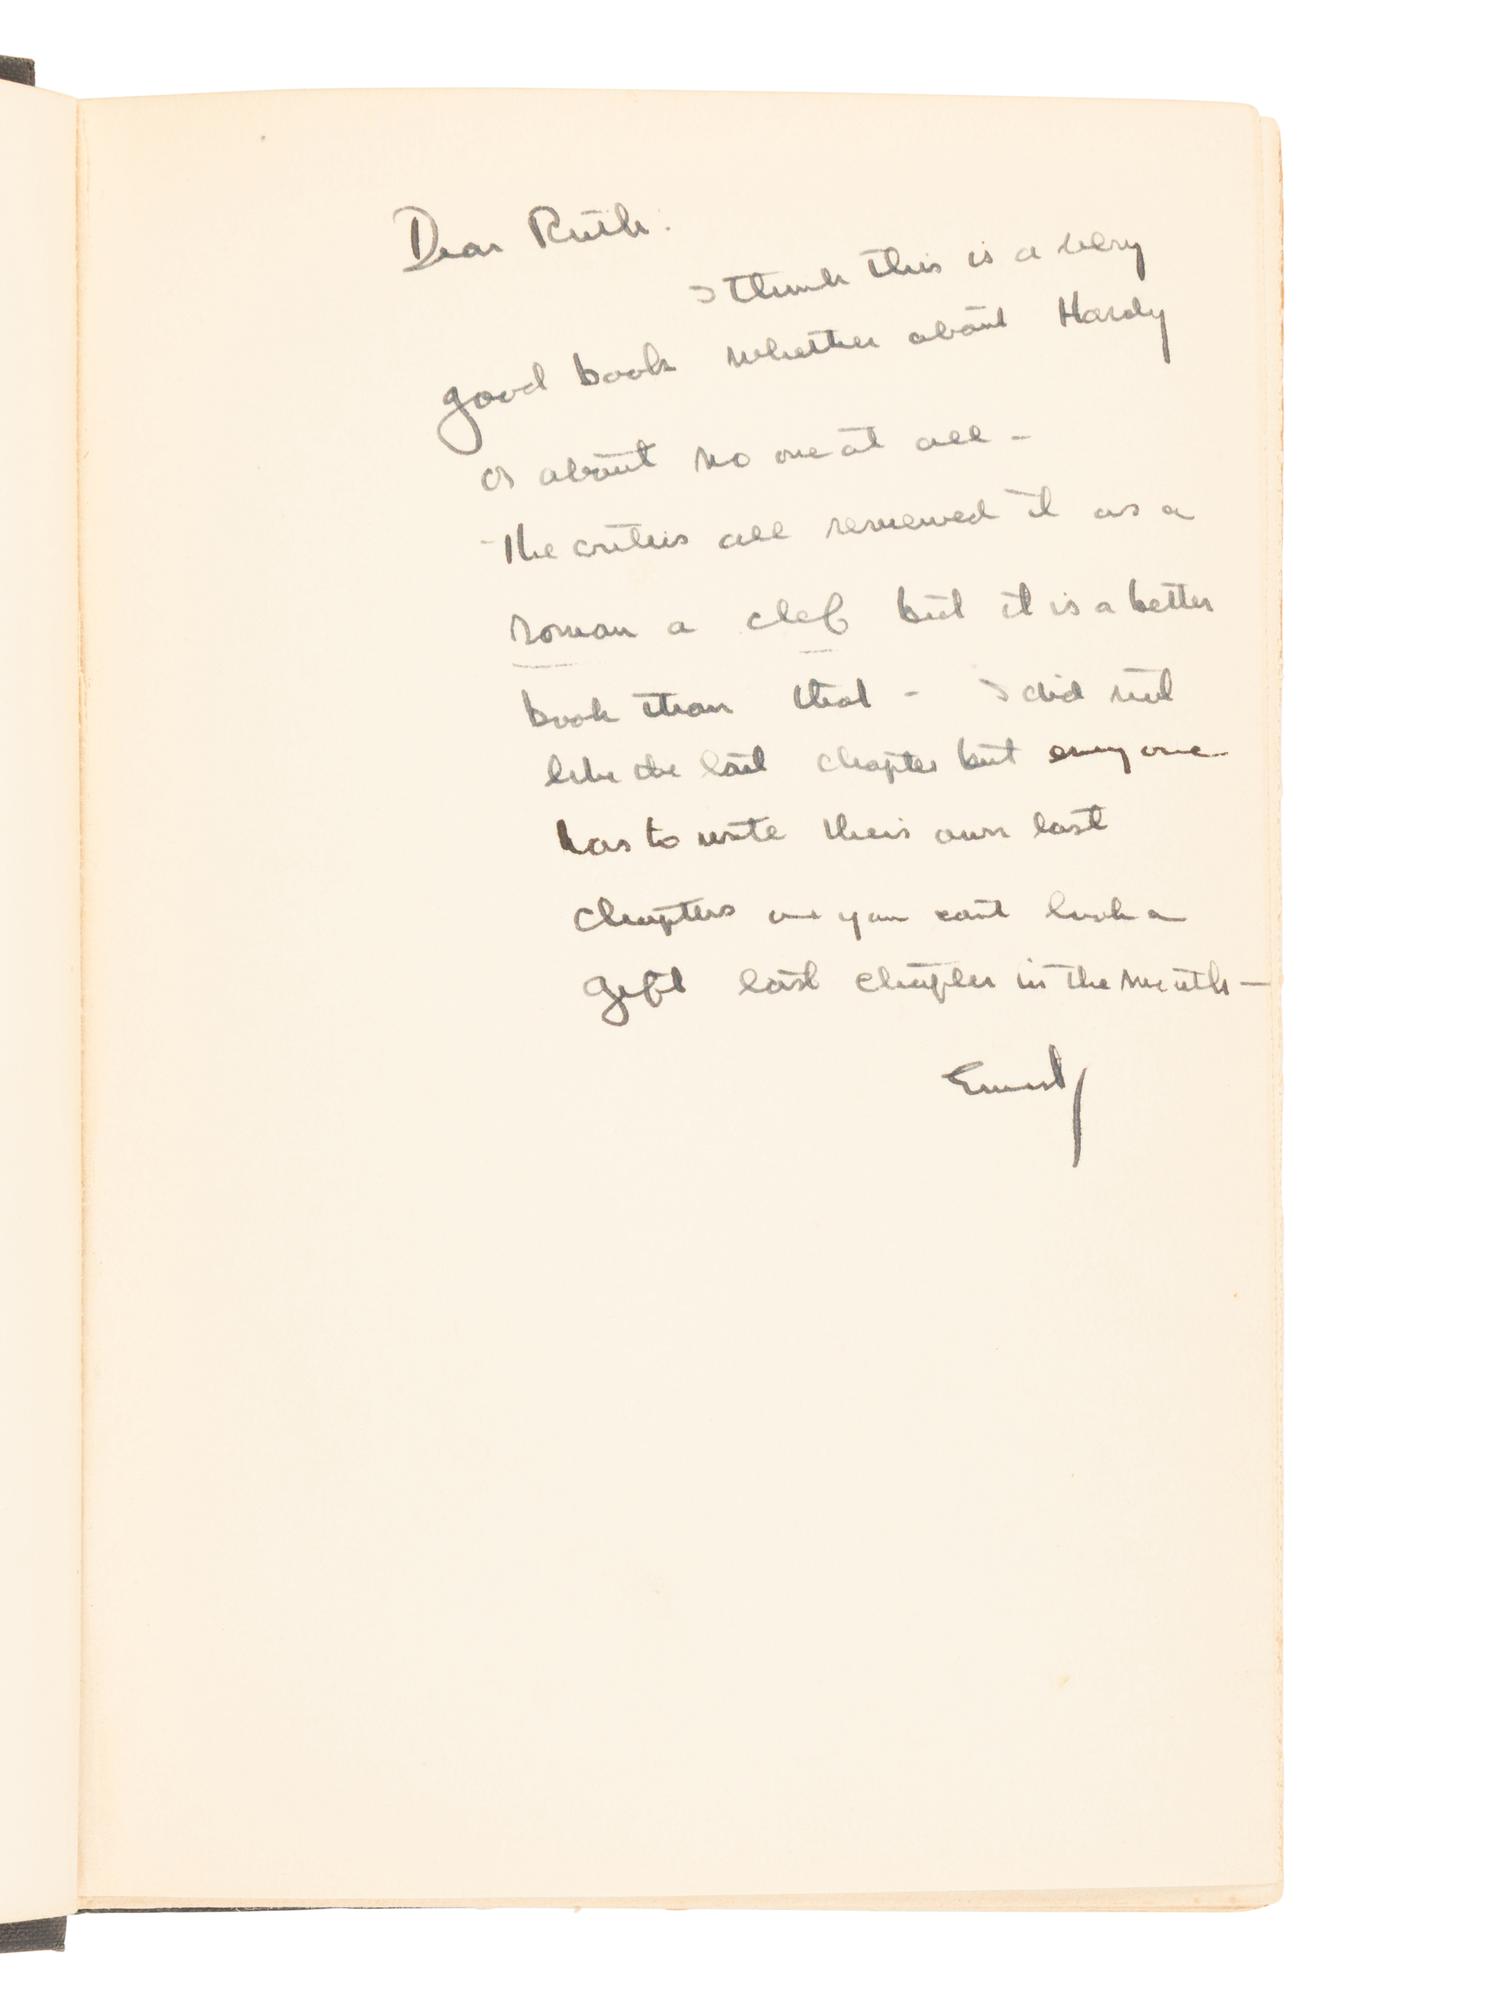 Dear Ruth:
I think this is a very
good book whether about Hardy
or about no one at all -
The critics all reviewed it as a
roman a clef but it is a better
book than that - I did not
like the last chapter but everyone
has to write their own last
chapters and you cant look a
gift last chapter in the mouth -
Ernest